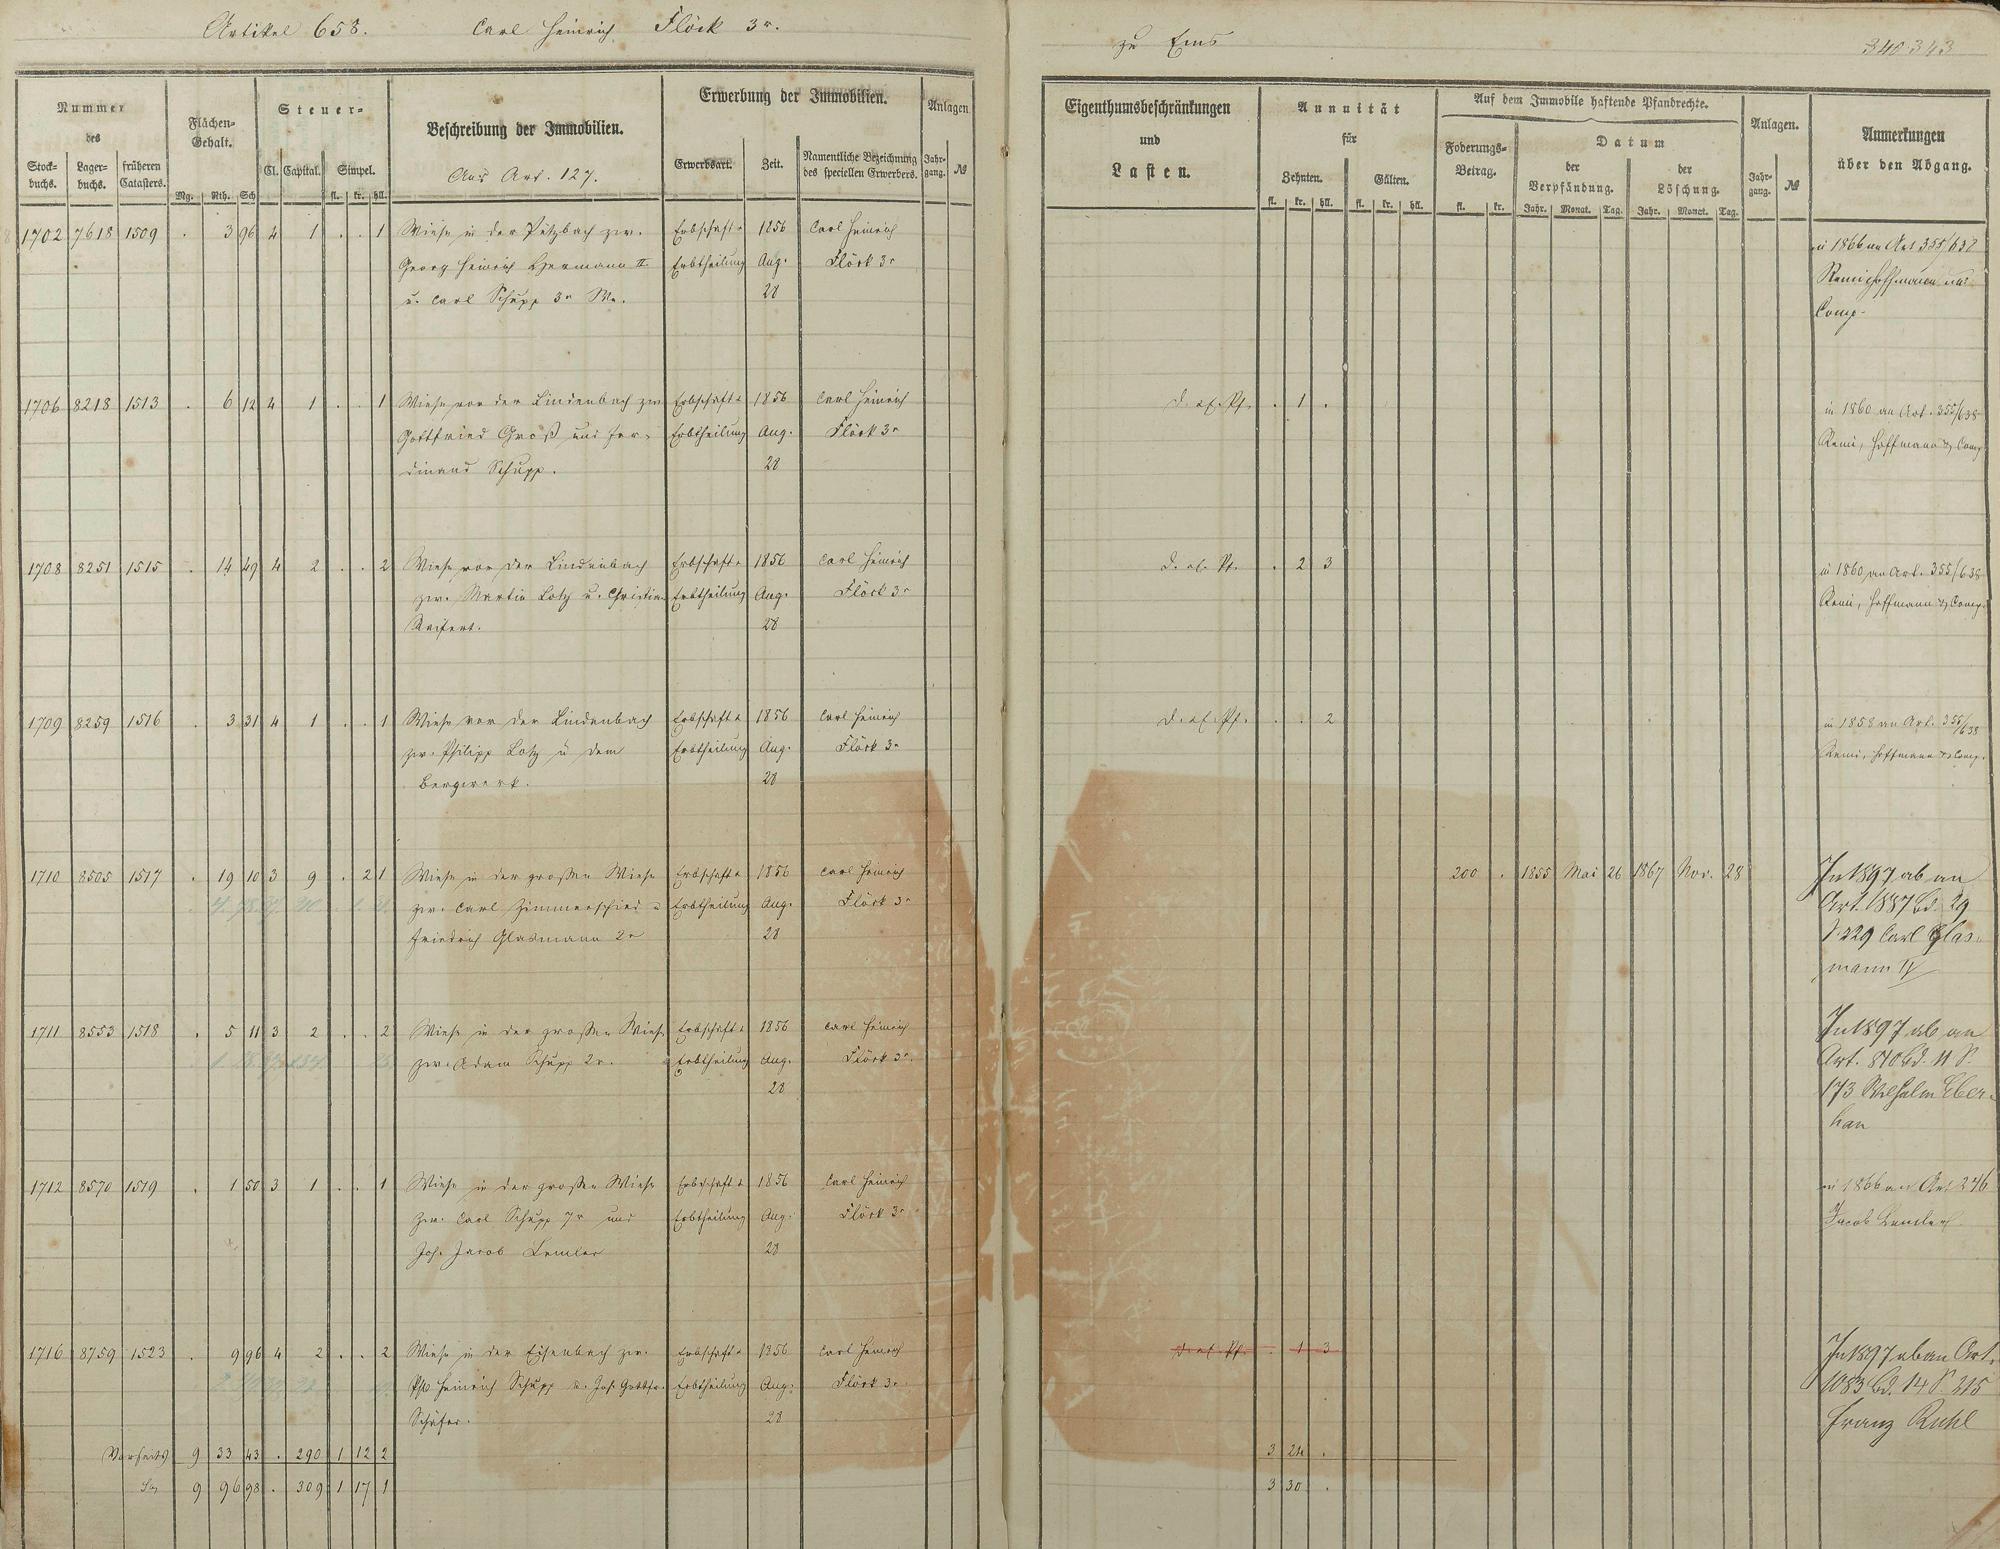 Artikel 658. Carl Heinrich Flöck 3r.
zu Ems
340 343
Nummer des
Stock-buchs. Lager-buchs. früheren Catasters.
Flächen-Gehalt.
Mg. Rth. Sch
Steuer-
Cl. Capital. Simpel.
fl. kr. hll.
Beschreibung der Immobilien.
Aus Art. 127.
Erwerbung der Immobilien.
Erwerbsart. Zeit. Namentliche Bezeichnung des speciellen Erwerbers.
Anlagen
Jahr-gang. №
Eigenthumsbeschränkungen und Lasten.
Annuität für
Zehnten. Gülten.
fl. kr. hll. fl. kr. hll.
Auf dem Immobile haftende Pfandrechte.
Foderungs-Betrag.
fl. kr.
Datum
der Verpfändung. der Löschung.
Jahr. Monat. Tag. Jahr. Monat. Tag.
Anlagen.
Jahr-gang. №
Anmerkungen über den Abgang.
1702 7618 1509 . 3 96 4 1 . . 1 Wiese in der Pitzbach zw. Erbschaft u. 1856 Carl Heinrich in 1866 an Art 355/638
Georg Heinrich Hermann II. Erbtheilung Aug. Flöck 3r Remi Hoffmann
u. Carl Schupp 3r We. 28 Comp.
1706 8218 1513 . 6 12 4 1 . . 1 Wiese vor der Lindenbach zw Erbschaft u. 1856 Carl Heinrich d. af. Pf. . 1 . in 1860 an Art. 355/638
Gottfried Groß und Fer- Erbtheilung Aug. Flöck 3r Remi, Hoffmann & Comp
dinand Schupp. 28
1708 8251 1515 . 14 49 4 2 . . 2 Wiese vor der Lindenbach Erbschaft u. 1856 Carl Heinrich d. af. Pf. . 2 3 in 1860 an Art. 355/638
zw. Martin Lotz u. Christian Erbtheilung Aug. Flöck 3r Remi, Hoffmann & Comp.
Seifert. 28
1709 8259 1516 . 3 31 4 1 . . 1 Wiese vor der Lindenbach Erbschaft u. 1856 Carl Heinrich d. af. Pf. . . 2 in 1858 an Art. 355/638
zw. Philipp Lotz u dem Erbtheilung Aug. Flöck 3r Remi, Hoffmann & Comp.
Bergwerk. 28
1710 8505 1517 . 19 10 3 9 . 2 1 Wiese in der großen Wiese Erbschaft u. 1856 Carl Heinrich 200 . 1855 Mai 26 1867 Nov. 28 In 1897 ab an
zw. Carl Zimmerschied u Erbtheilung Aug. Flöck 3r Art. 1887 Bd. 29
Friedrich Glasmann 2r 28 S. 229 Carl Glas-
mann IV
1711 8553 1518 . 5 11 3 2 . . 2 Wiese in der großen Wiese Erbschaft u. 1856 Carl Heinrich In 1897 ab an
zw. Adam Schupp 2r. Erbtheilung Aug. Flöck 3r. Art. 840 Bd. 11 S.
28 173 Wilhelm Eber-
han
1712 8570 1519 . 1 50 3 1 . . 1 Wiese in der großen Wiese Erbschaft u. 1856 Carl Heinrich in 1866 an Art 246
zw. Carl Schupp 7r und Erbtheilung Aug. Flöck 3r Jacob
Joh. Jacob Lemler 28
1716 8759 1523 . 9 96 4 2 . . 2 Wiese in der Eisenbach zw. Erbschaft u. 1856 Carl Heinrich d. af. Pf. . 1 3 In 1897 ab an Art.
Phil Heinrich Schupp u. Joh. Gottfr. Erbtheilung Aug. Flöck 3r 1083 Bd. 14 S. 215
Schäfer. 28 Franz Ruhl
Vorseits 9 33 43 . 290 1 12 2 3 24 .
Sa 9 96 98 . 309 1 17 1 3 30 .